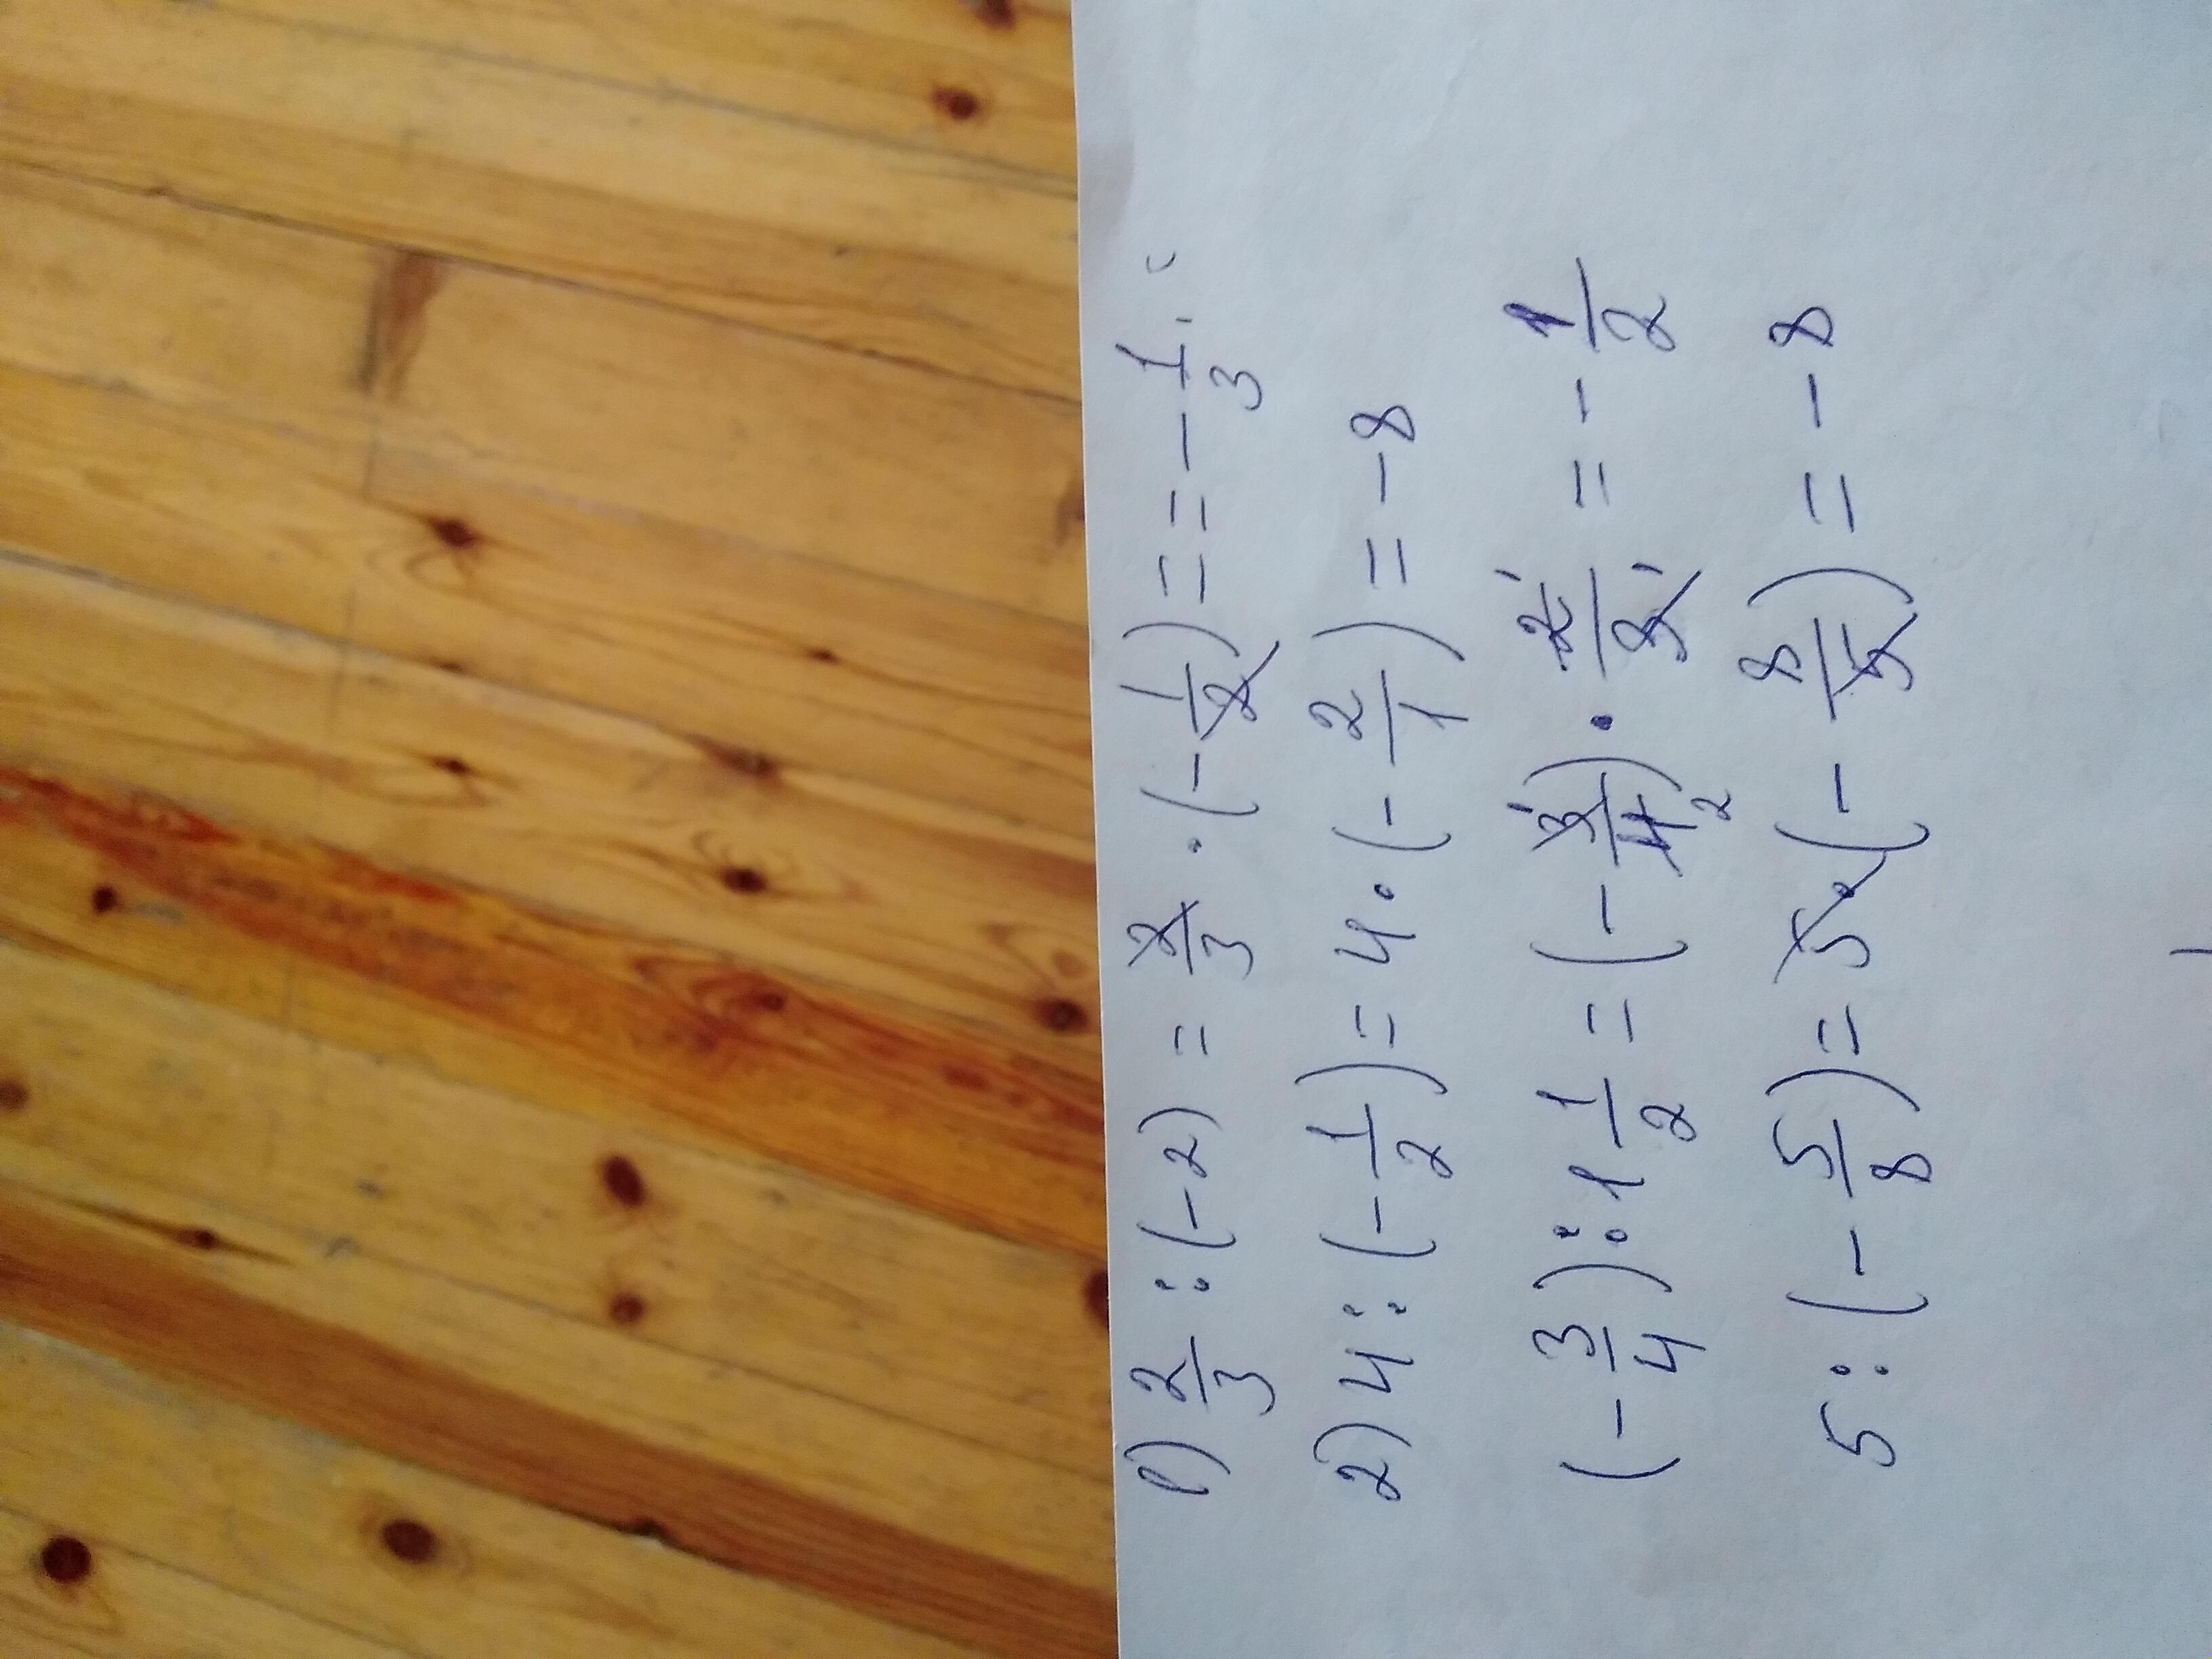 1) 2/3 : (-2) = 2/3 · (-1/2) = = -1/3
2) 4 : (-1/2) = 4 · (-2/1) = -8
(-3/4) : 1 1/2 = (-3/4) · 2/3 = -1/2
5 : (-5/8) = 5 · (-8/5) = -8